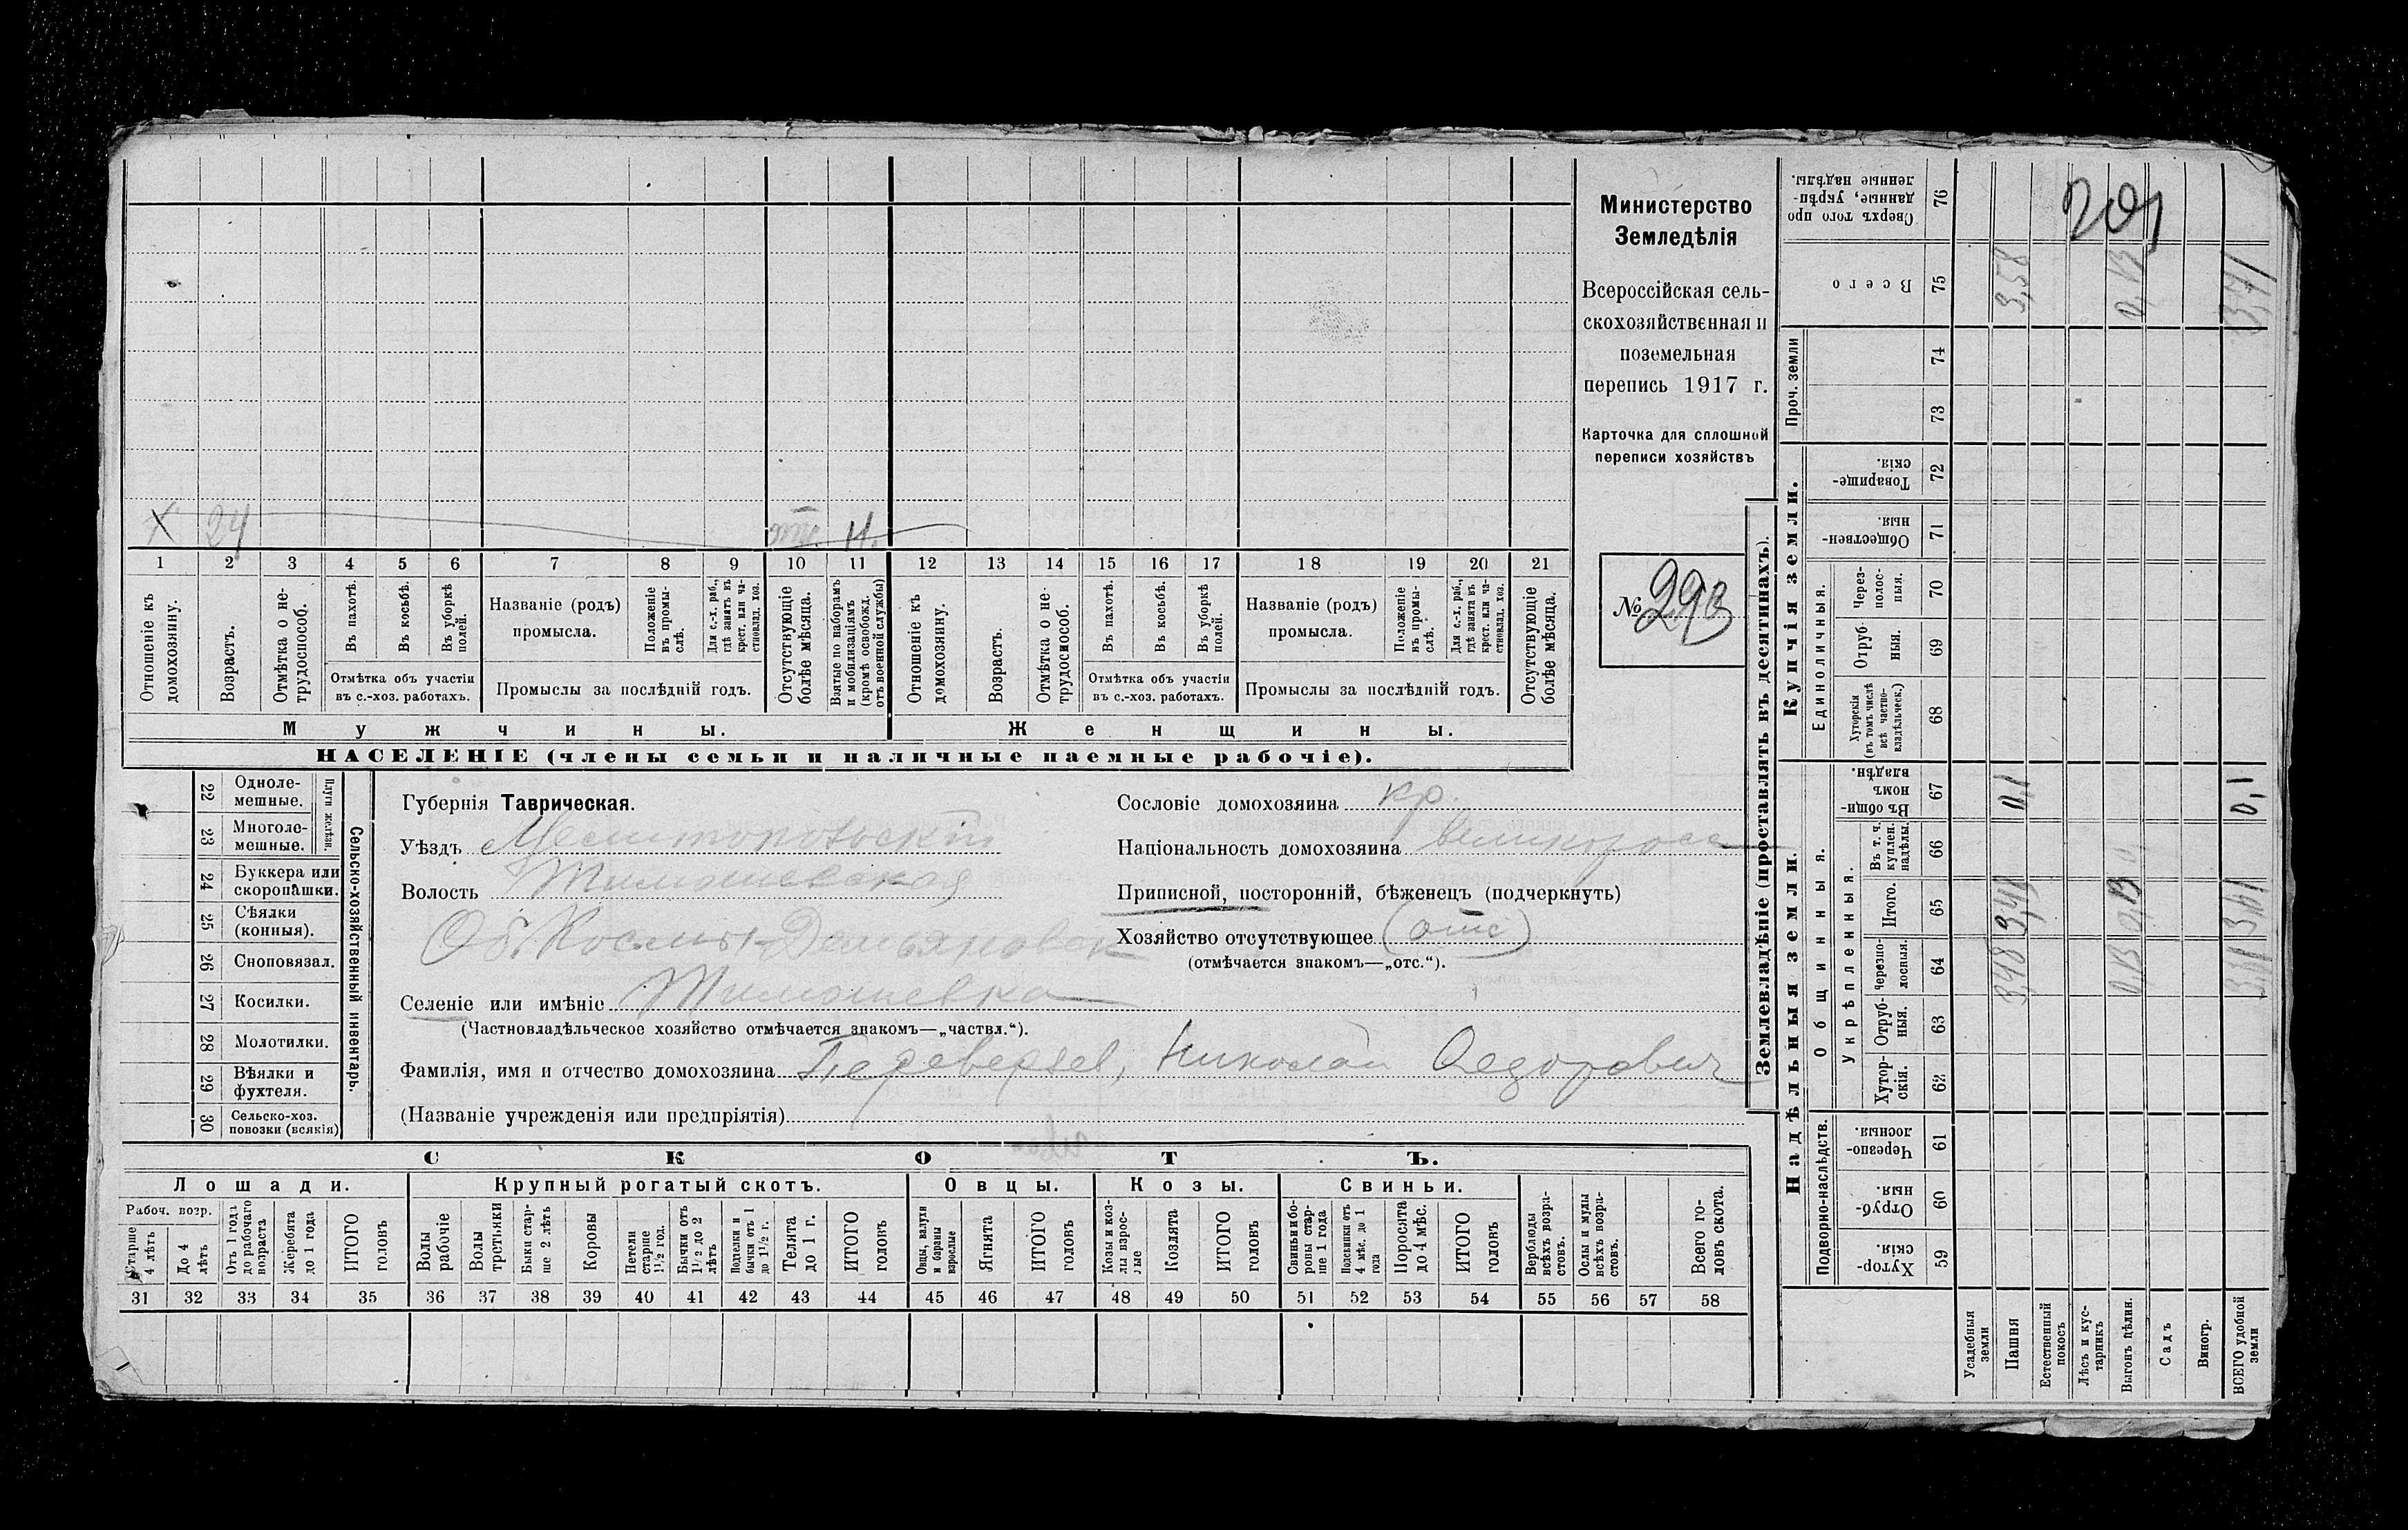 Министерство
Земледѣлія
Всероссійская сель-
скохозяйственная и
поземельная
перепись 1917 г.
Карточка для сплошной
переписи хозяйствъ
№ 293
X 24 отс. н.
1 2 3 4 5 6 7 8 9 10 11 12 13 14 15 16 17 18 19 20 21
Отношеніе къ домохозяину.
Возрастъ.
Отмѣтка о не-трудоспособ.
Въ пахотѣ.
Въ косьбѣ.
Въ уборкѣ полей.
Отмѣтка объ участіи
въ с.-хоз. работахъ.
Названіе (родъ)
промысла.
Положеніе въ промы-слѣ.
Для с.-х. раб., гдѣ занятъ въ крест. или ча-стновлад. хоз.
Промыслы за послѣдній годъ.
Отсутствующіе болѣе мѣсяца.
Взятые по наборамъ и мобилизаціямъ (кромѣ освобожд. отъ военной службы)
Отношеніе къ домохозяину.
Возрастъ.
Отмѣтка о не-трудоспособ.
Въ пахотѣ.
Въ косьбѣ.
Въ уборкѣ полей.
Отмѣтка объ участіи
въ с.-хоз. работахъ.
Названіе (родъ)
промысла.
Положеніе въ промы-слѣ.
Для с.-х. раб., гдѣ занята въ крест. или ча-стновлад. хоз.
Промыслы за послѣдній годъ.
Отсутствующіе болѣе мѣсяца.
Мужчины.
Женщины.
НАСЕЛЕНІЕ (члены семьи и наличные наемные рабочіе).
22 Одноле-мешные.
23 Многоле-мешные.
Плуги желѣзн.
24 Буккера или скоропашки.
25 Сѣялки (конныя).
26 Сноповязал.
27 Косилки.
28 Молотилки.
29 Вѣялки и фухтеля.
30 Сельско-хоз. повозки (всякія)
Сельско-хозяйственный инвентарь.
Губернія Таврическая.
Уѣздъ Мелитопольскій
Волость Тимошевская
Об. Космы-Демьяновск
Селеніе или имѣніе Тимошевка
(Частновладѣльческое хозяйство отмѣчается знакомъ—„частвл.“).
Фамилія, имя и отчество домохозяина Переверзев, Николай Федорович
(Названіе учрежденія или предпріятія)
Сословіе домохозяина кр.
Національность домохозяина великоросс
Приписной, посторонній, бѣженецъ (подчеркнуть)
Хозяйство отсутствующее (отс)
(отмѣчается знакомъ—„отс.“).
СКОТЪ.
Лошади.
Крупный рогатый скотъ.
Овцы.
Козы.
Свиньи.
Рабоч. возр.
Старше 4 лѣтъ
До 4 лѣтъ
Отъ 1 года до рабочаго возраста
Жеребята до 1 года
ИТОГО головъ
Волы рабочіе
Волы третьяки
Быки стар-ше 2 лѣтъ
Коровы
Нетели старше 1½ год.
Бычки отъ 1½ до 2 лѣтъ
Подтелки и бычки отъ 1 до 1½ г.
Телята до 1 г.
ИТОГО головъ
Овцы, валухи и бараны взрослые
Ягнята
ИТОГО головъ
Козы и коз-лы взрос-лые
Козлята
ИТОГО головъ
Свиньи и бо-ровы стар-ше 1 года
Подсвинки отъ 4 мѣс. до 1 года
Поросята до 4 мѣс.
ИТОГО головъ
Верблюды всѣхъ возра-стовъ.
Ослы и мулы всѣхъ возра-стовъ.
Всего го-ловъ скота.
31 32 33 34 35 36 37 38 39 40 41 42 43 44 45 46 47 48 49 50 51 52 53 54 55 56 57 58
Землевладѣніе (проставлять въ десятинахъ).
Надѣльныя земли.
Купчія земли.
Проч. земли
Подворно-наслѣдств.
Общинныя.
Укрѣпленныя.
Единоличныя.
Сверхъ того про данные, укрѣп-ленные надѣлы. 76
Всего 75
74
73
Товарище-скія. 72
Обществен-ныя. 71
Черезполос-ныя. 70
Отруб-ныя. 69
Хуторскія (въ томъ числѣ всѣ частно-владѣльческ.) 68
Въ общин-номъ владѣн. 67
Въ т. ч. куплен. надѣлы. 66
Итого. 65
Черезпо-лосныя. 64
Отруб-ныя. 63
Хутор-скія. 62
Черезпо-лосныя. 61
Отруб-ныя. 60
Хутор-скія. 59
Усадебныя земли
Пашня
Естественный покосъ
Лѣсъ и кус-тарникъ
Выгонъ цѣлин.
Садъ
Виногр.
ВСЕГО удобной земли
3,58
0,1
3,48
0,13
0,1